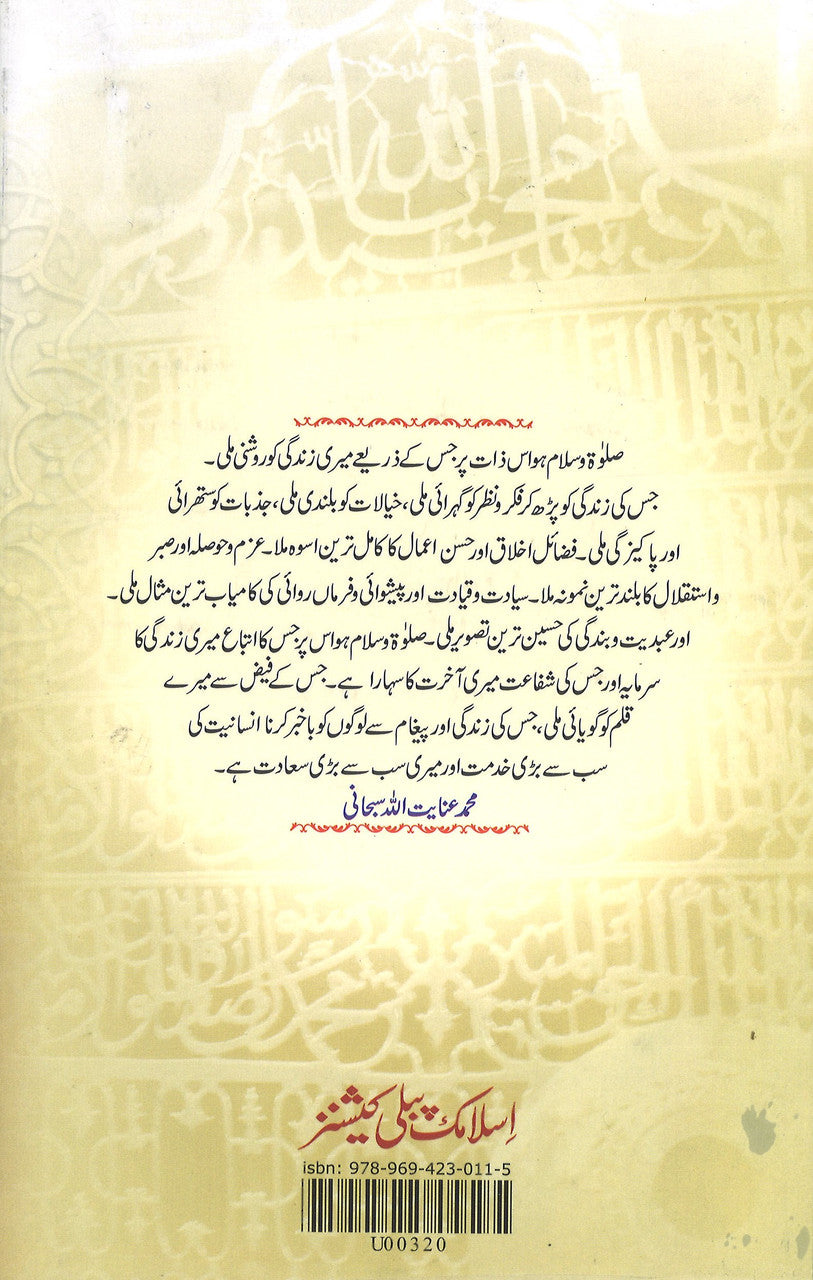 صلوٰۃ و سلام ہو اس ذات پر جس کے ذریعے میری زندگی کو روشنی ملی۔
جس کی زندگی کو پڑھ کر فکر و نظر کو گہرائی ملی، خیالات کو بلندی ملی، جذبات کو ستھرائی
اور پاکیزگی ملی۔ فضائل اخلاق اور حسن اعمال کا کامل ترین اسوہ ملا۔ عزم و حوصلہ اور صبر
و استقلال کا بلند ترین نمونہ ملا۔ سیادت و قیادت اور پیشوائی و فرماں روائی کی کامیاب ترین مثال ملی۔
اور عبدیت و بندگی کی حسین ترین تصویر ملی۔ صلوٰۃ و سلام ہو اس پر جس کا اتباع میری زندگی کا
سرمایہ اور جس کی شفاعت میری آخرت کا سہارا ہے۔ جس کے فیض سے میرے
قلم کو گویائی ملی، جس کی زندگی اور پیغام سے لوگوں کو باخبر کرنا انسانیت کی
سب سے بڑی خدمت اور میری سب سے بڑی سعادت ہے۔
محمد عنایت اللہ سبحانی
اسلامک پبلی کیشنز
isbn: 978-969-423-011-5
U00320